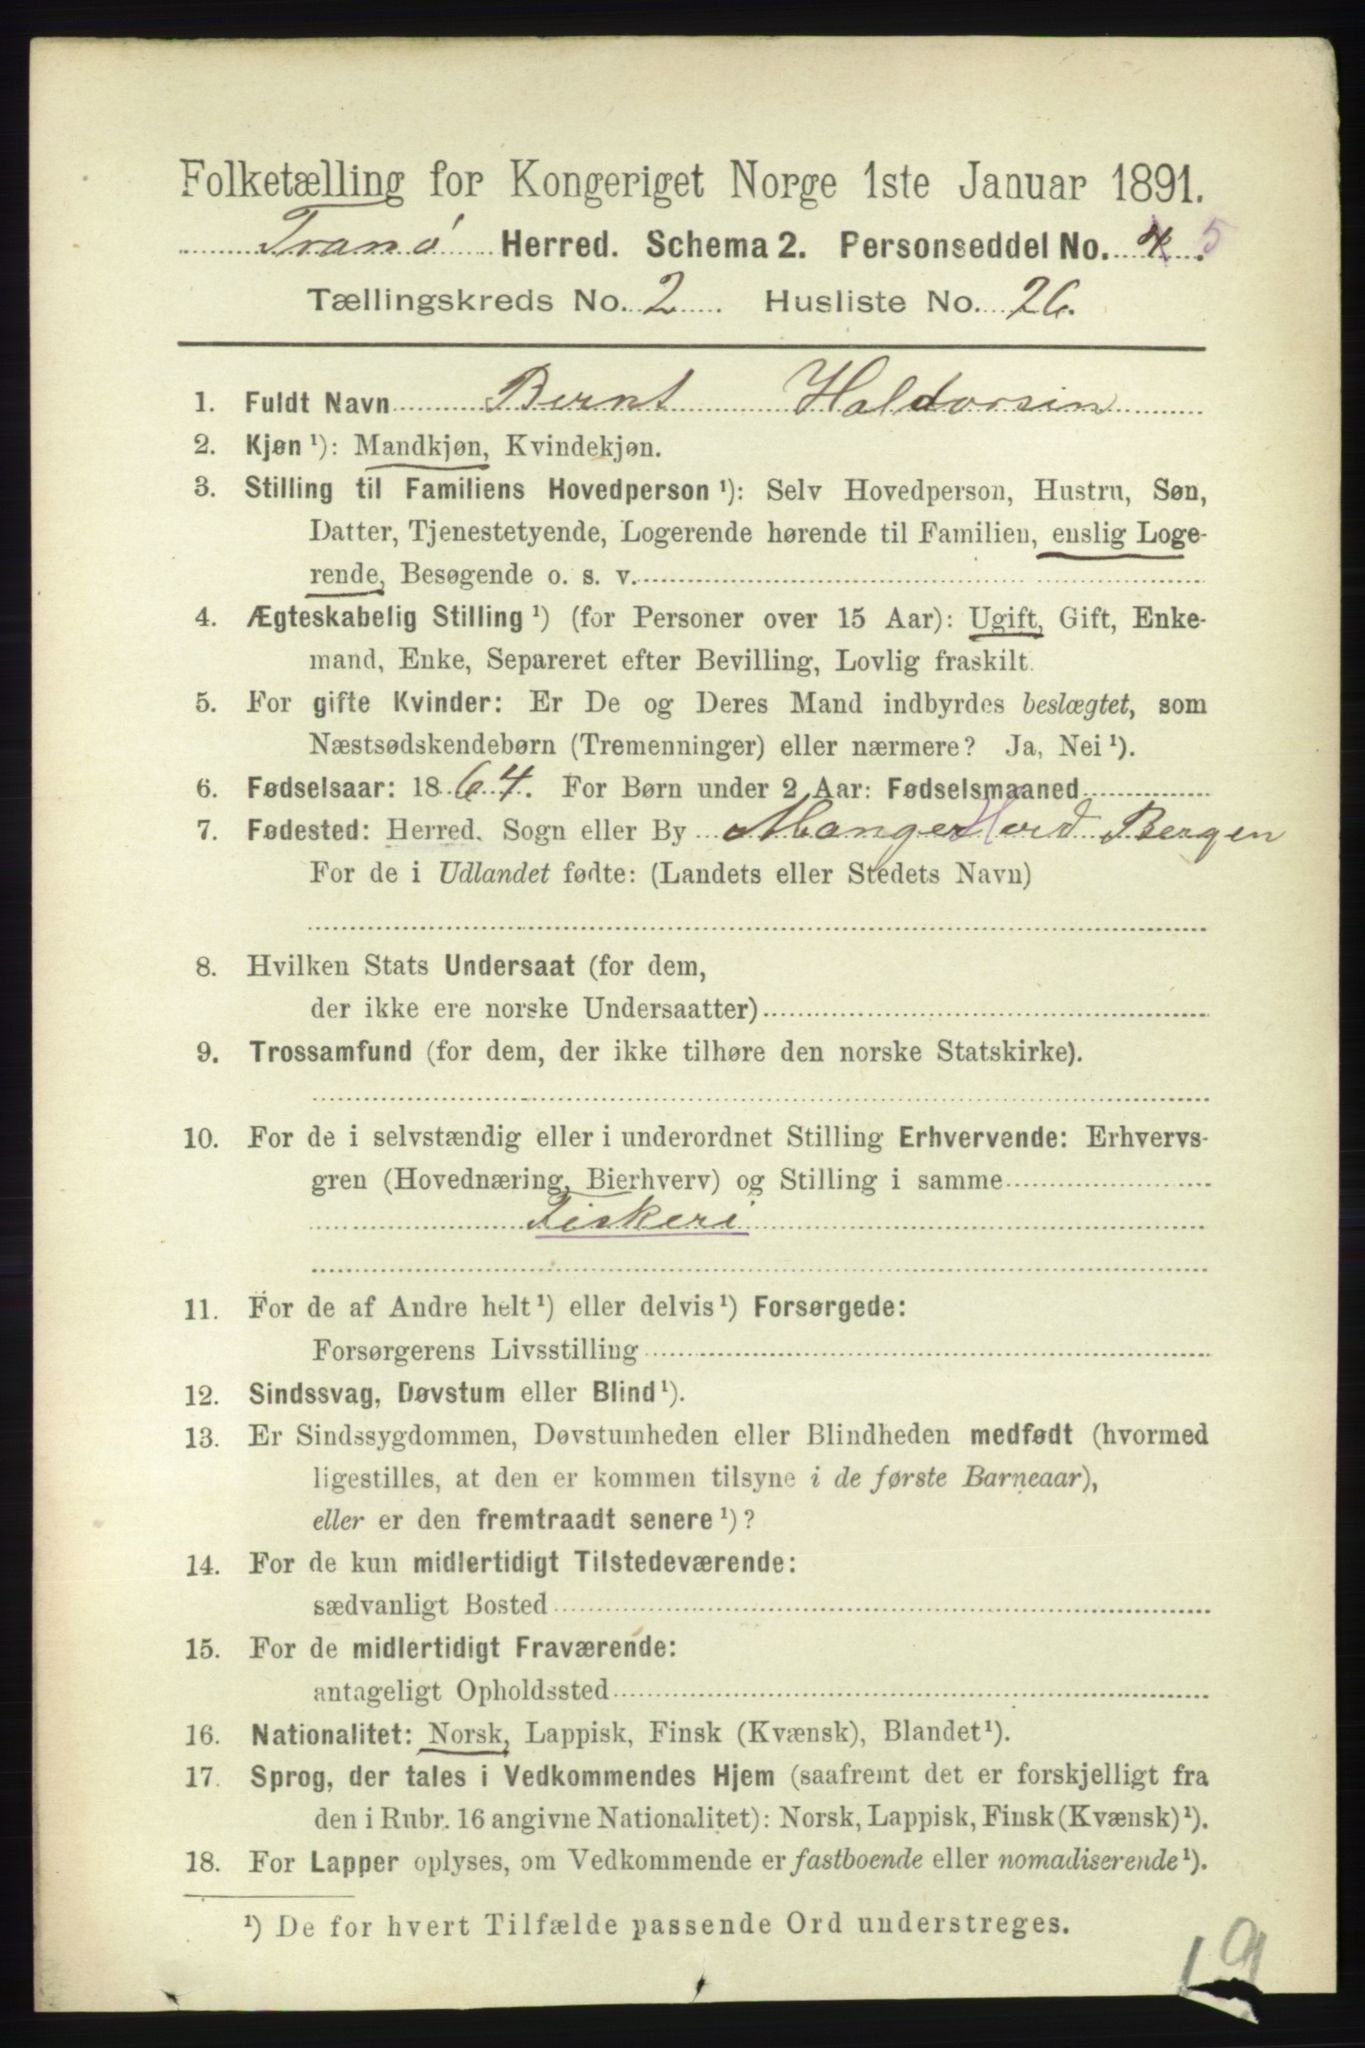 Folketælling for Kongeriget Norge 1ste Januar 1891.
Tranø Herred. Schema 2. Personseddel No. 4. 5
Tællingskreds No. 2 Husliste No. 26.
1. Fuldt Navn Bernt Haldorsin
2. Kjøn ¹): Mandkjøn, Kvindekjøn.
3. Stilling til Familiens Hovedperson ¹): Selv Hovedperson, Hustru, Søn,
Datter, Tjenestetyende, Logerende hørende til Familien, enslig Loge-
rende, Besøgende o. s. v.
4. Ægteskabelig Stilling ¹) (for Personer over 15 Aar): Ugift, Gift, Enke-
mand, Enke, Separeret efter Bevilling, Lovlig fraskilt.
5. For gifte Kvinder: Er De og Deres Mand indbyrdes beslægtet, som
Næstsødskendebørn (Tremenninger) eller nærmere? Ja, Nei ¹).
6. Fødselsaar: 1864. For Børn under 2 Aar: Fødselsmaaned
7. Fødested: Herred, Sogn eller By Manger Bergen
For de i Udlandet fødte: (Landets eller Stedets Navn)
8. Hvilken Stats Undersaat (for dem,
der ikke ere norske Undersaatter)
9. Trossamfund (for dem, der ikke tilhøre den norske Statskirke).
10. For de i selvstændig eller i underordnet Stilling Erhvervende: Erhvervs-
gren (Hovednæring, Bierhverv) og Stilling i samme
Fiskeri
11. For de af Andre helt ¹) eller delvis ¹) Forsørgede:
Forsørgerens Livsstilling
12. Sindssvag, Døvstum eller Blind ¹).
13. Er Sindssygdommen, Døvstumheden eller Blindheden medfødt (hvormed
ligestilles, at den er kommen tilsyne i de første Barneaar),
eller er den fremtraadt senere ¹)?
14. For de kun midlertidigt Tilstedeværende:
sædvanligt Bosted
15. For de midlertidigt Fraværende:
antageligt Opholdssted
16. Nationalitet: Norsk, Lappisk, Finsk (Kvænsk), Blandet ¹).
17. Sprog, der tales i Vedkommendes Hjem (saafremt det er forskjelligt fra
den i Rubr. 16 angivne Nationalitet): Norsk, Lappisk, Finsk (Kvænsk) ¹).
18. For Lapper oplyses, om Vedkommende er fastboende eller nomadiserende ¹).
¹) De for hvert Tilfælde passende Ord understreges.
19